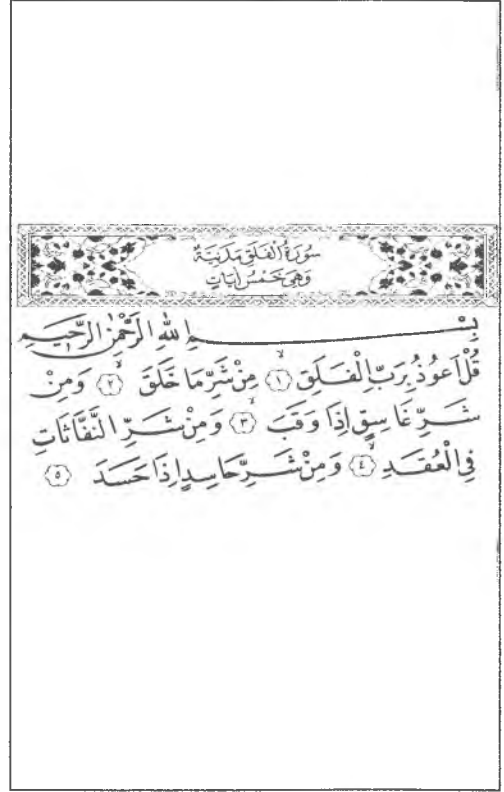 سُورَةُ الْفَلَقِ مَدَنِيَّةٌ
وَهِيَ خَمْسُ اٰيَاتٍ
بِسْمِ اللّٰهِ الرَّحْمٰنِ الرَّحٖيمِ
قُلْ اَعُوذُ بِرَبِّ الْفَلَقِ ﴿١﴾ مِنْ شَرِّ مَا خَلَقَ ﴿٢﴾ وَمِنْ
شَرِّ غَاسِقٍ اِذَا وَقَبَ ﴿٣﴾ وَمِنْ شَرِّ النَّفَّاثَاتِ
فِي الْعُقَدِ ﴿٤﴾ وَمِنْ شَرِّ حَاسِدٍ اِذَا حَسَدَ ﴿٥﴾